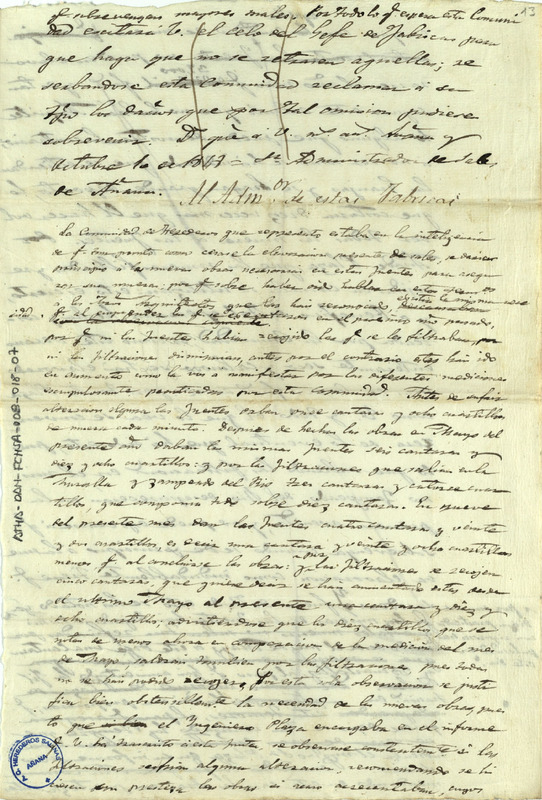 13
q.e sobrevengan mayores males. Por todo lo q.e espera esta Comuni
dad escitará V. el celo del Gefe de Fabricas para
que haga que no se retrasen aquellas; re
serbandose esta Comunidad reclamar á su
tpo los daños que por tal omision pudiese
subrevenir. D. gúe á V. m.s an.s Añana y
Octubre 10 de 1847 = S.r Administrador de Sales
de Añana.
Al Adm.or de estas Fabricas
La Comunidad de Herederos que represento estaba en la inteligencia
de q.e tan pronto como cesase la elavoracion presente de sales, se daria
principio á las nuevas obras necesarias en estas fuentes para asegu
rar sus mueras; por q.e sobre haber oido hablar en este
á los Arquitectos que los han reconocido,
q.e al emprender las q.e se egecutaron en el proximo pasado,
por q.e ni las fuentes habian recojido las q.e se les filtraban, por
ni las filtraciones disminuian, antes por el contrario estas han ido
en aumento como le voy á manifestar por las diferentes mediciones
escrupulosamente practicadas por esta comunidad. Antes de sufrir
alteracion alguna las fuentes daban once cantaras y ocho cuartillos
de muera cada minuto. Despues de hechas las obras en Mayo del
presente año daban las mismas fuentes seis cantaras y
diez y ocho cuartillos: y por las filtraciones que salian en la
Muralla y Zampeado del Rio tres cantaras y catorce cuar
tillos, que componia todo sobre diez cantaras. En nueve
del presente mes dan las fuentes cuatro cantaras y veinte
y dos cuartillos, es decir una cantara y veinte y ocho cuartillos
menos q.e al concluirse las obras: y por las filtraciones se recojen
cinco cantaras, que quiere decir se han aumentado estas desde
el ultimo Mayo al presente una cantara y diez y
ocho cuartillos, advirtiendose que los diez cuartillos que se
notan de menos ahora en comparacion de la medicion del mes
de Mayo, saldran tambien por las filtraciones, pues todas
no se han podido recojer. Por esta sola observacion se justi
fica bien la necesidad de las nuevas obras, pues
to que el Ingeniero Plaza encargaba en el informe
q.e V. ha transcrito á esta parte, se observase constantemente si las
filtraciones sufrian alguna alteracion, recomendando se hi
ciesen con presteza las obras
ATHA-DAH-FCHSA-008-018-07
C. G. HEREDEROS SALINAS
AÑANA